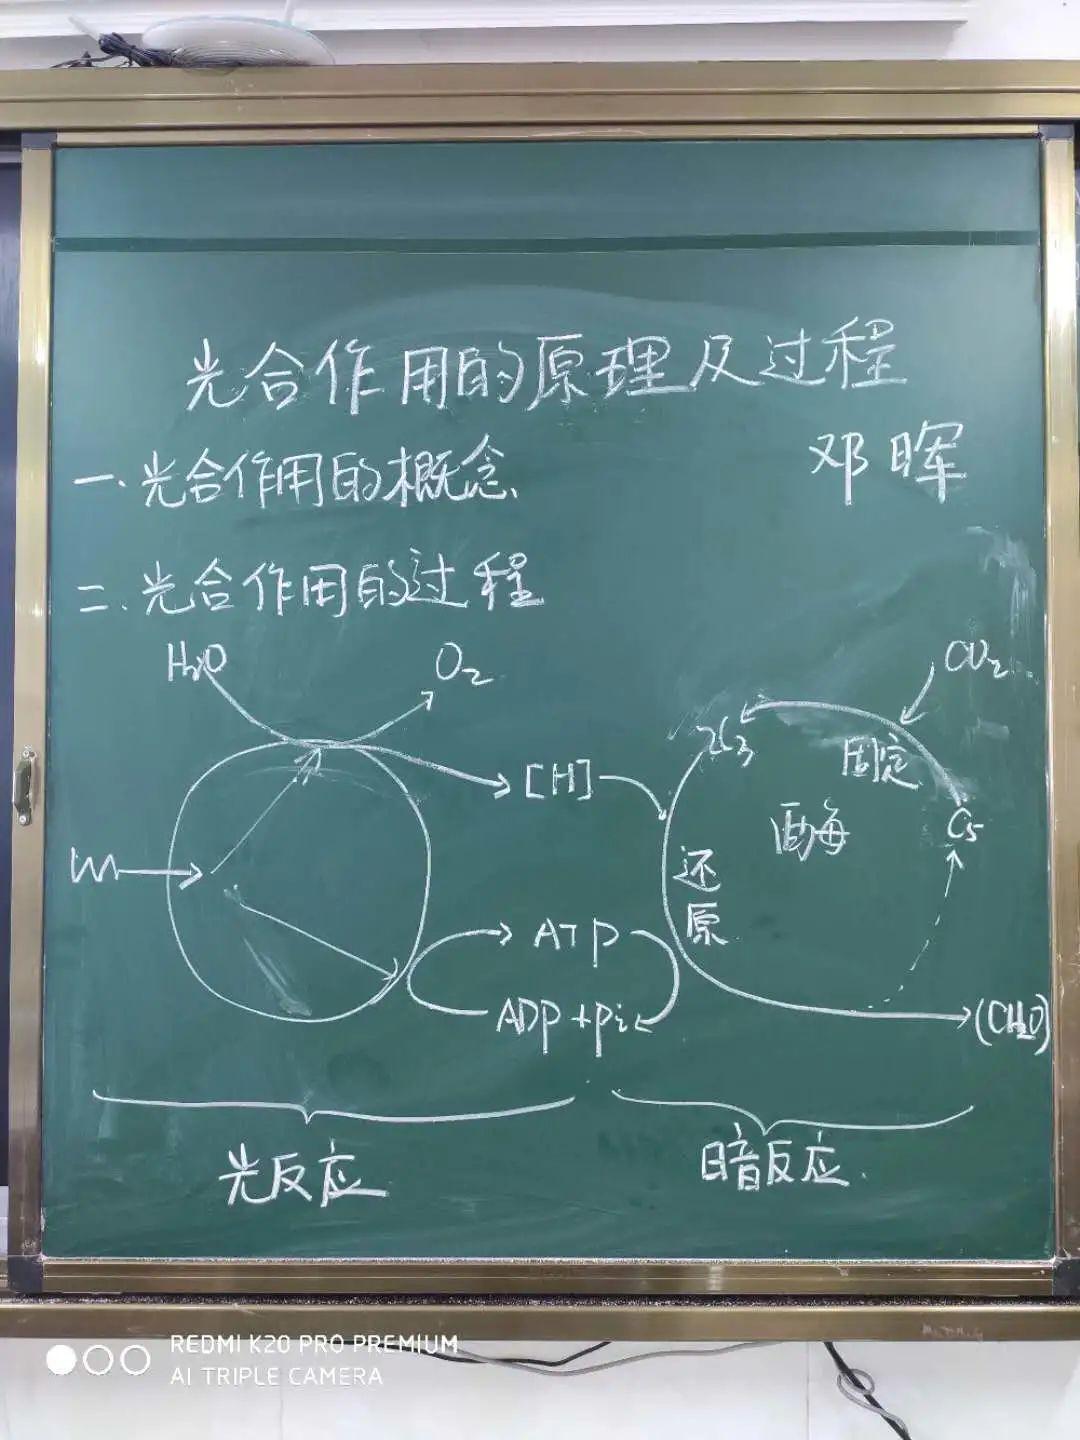 光合作用的原理及过程
邓晖
一.光合作用的概念
二.光合作用的过程
H₂O
O₂
CO₂
2C₃
固定
[H]
酶
C₅
还原
ATP
ADP+Pi
(CH₂O)
光反应
暗反应
REDMI K20 PRO PREMIUM
AI TRIPLE CAMERA